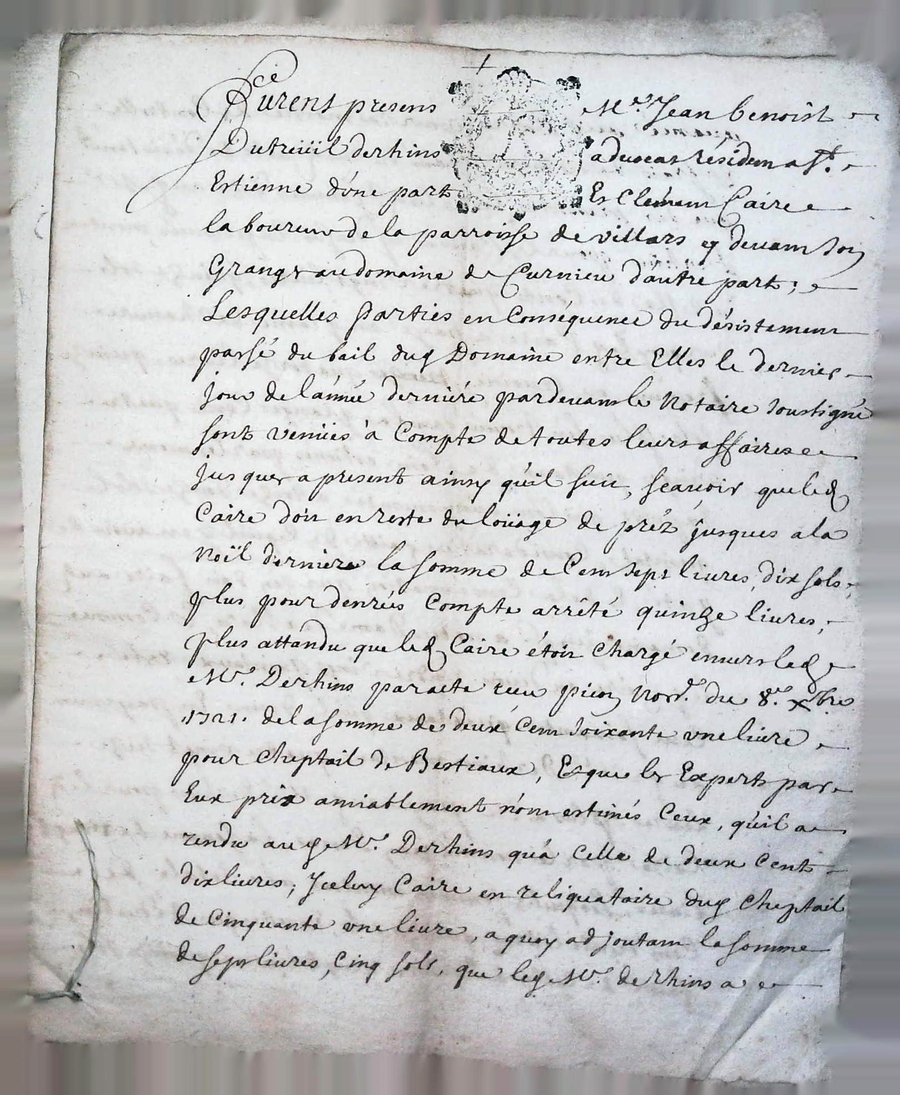 Furent presens Mr. Jean Benoist
Dutreüil Derhins advocat résident a St.
Estienne d'une part Et Clément Caire
laboureur de la parroisse de villars cy devant son
Granger au domaine de Curnieu d'autre part;
Lesquelles Parties en Conséquence du désistement
passé du bail dud Domaine entre Elles le dernier
jour de l'année derniére pardevant le Notaire soussigné
sont venües à Compte de toutes leurs affaires
jusques a present ainsy qu'il suit, scavoir que led
Caire doit en reste du loüage de préz jusques a la
Noïl derniere la somme de Cent sept livres, dix sols,
plus pour denrées Compte arrêté quinze livres,
plus attandu que led Caire étoit Chargé envers led
Mr. Derhins par acte receu Notre. du 8e. xbre
1721. de la somme de deux Cent soixante une livre
pour Cheptail de Bestiaux, Et que les Experts par
Eux pris amiablement n'ont estimés Ceux, qu'il a
rendu aud Mr. Derhins qu'a Celle de deux Cent
dix livres, Iceluy Caire en reliquataire dud Cheptail
de Cinquante une livre, a quoy adjoutant la somme
de sept livres, Cinq sols, que led Mr. derhins a